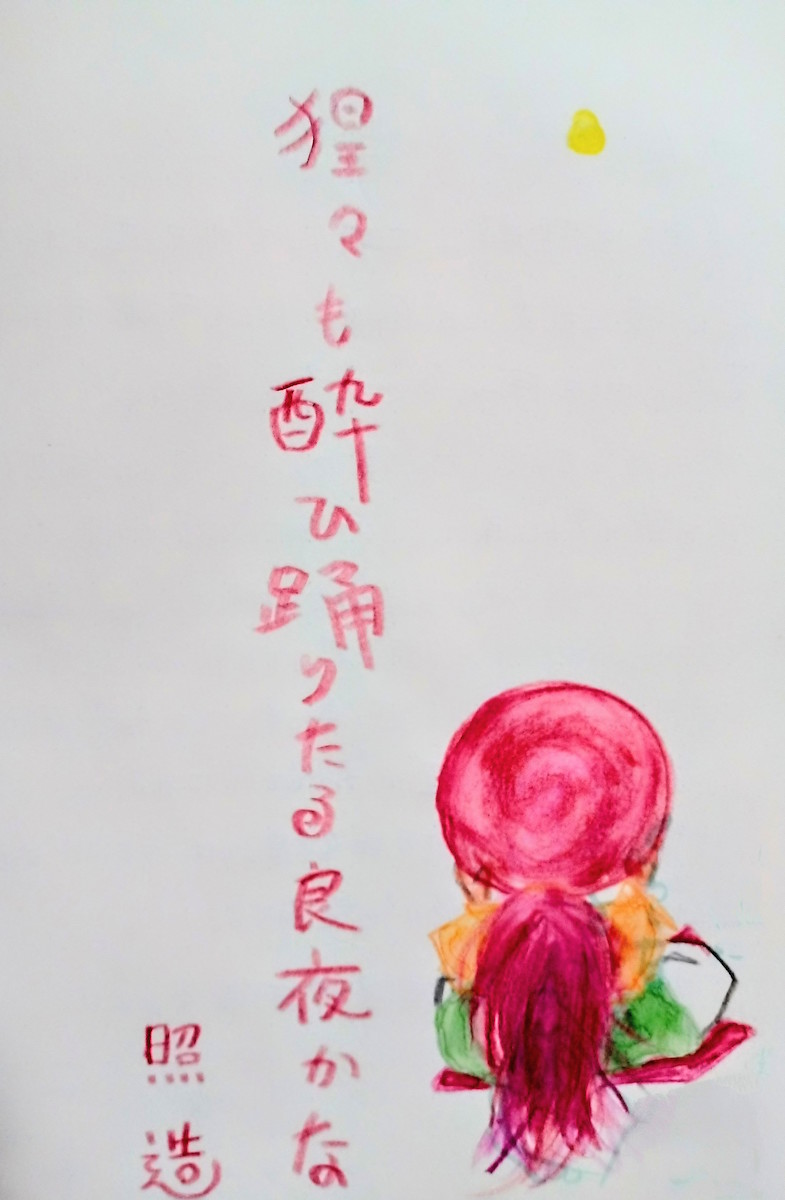 猩々も酔ひ踊りたる良夜かな
照造